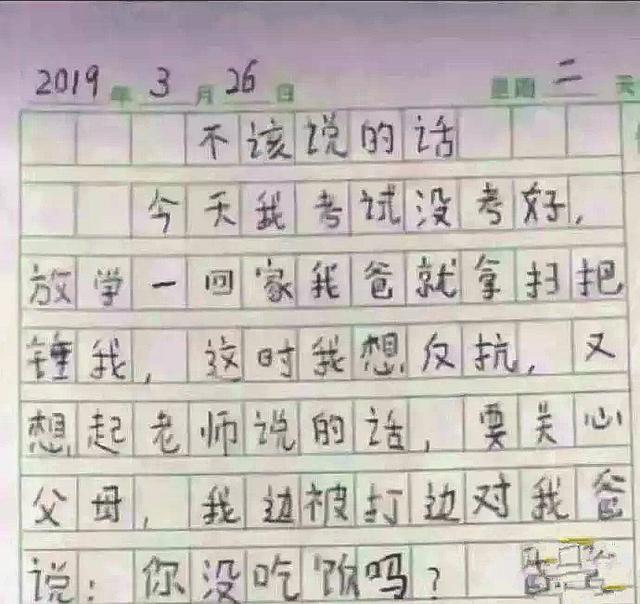 2019年 3月 26日 星期二 天
不该说的话
今天我考试没考好,
放学一回家我爸就拿扫把
锤我,这时我想反抗,又
想起老师说的话,要关心
父母,我边被打边对我爸
说:你没吃饭吗?